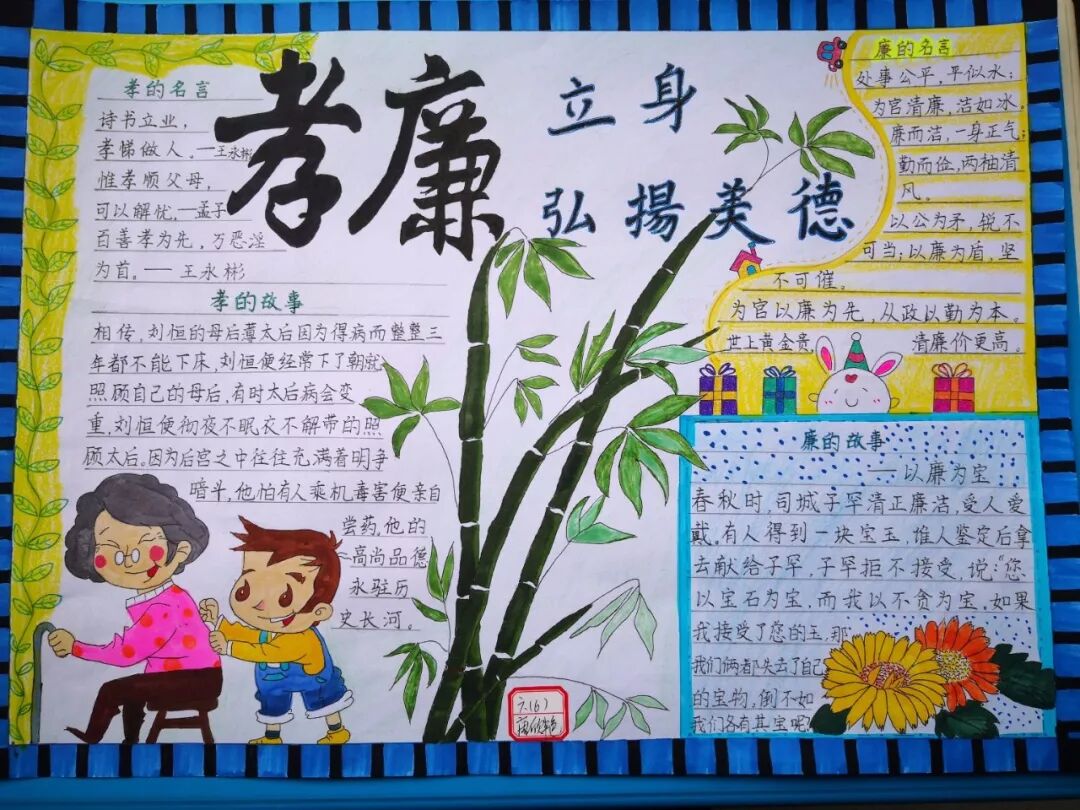 孝廉
立身
弘揚美德
孝的名言
诗书立业，
孝悌做人。—王永彬
惟孝顺父母，
可以解忧，—孟子
百善孝为先，万恶淫
为首。——王永彬
孝的故事
相传，刘恒的母后薄太后因为得病而整整三
年都不能下床，刘恒便经常下了朝就
照顾自己的母后，有时太后病会变
重，刘恒便彻夜不眠衣不解带的照
顾太后。因为后宫之中往往充满着明争
暗斗，他怕有人乘机毒害便亲自
尝药，他的
高尚品德
永驻历
史长河。
廉的名言
处事公平，平似水；
为官清廉，洁如冰。
廉而洁，一身正气；
勤而俭，两袖清
风。
以公为矛，锐不
可当；以廉为盾，坚
不可催。
为官以廉为先，从政以勤为本。
世上黄金贵，清廉价更高。
廉的故事
——以廉为宝
春秋时，司城子罕清正廉洁，受人爱
戴。有人得到一块宝玉，惟人鉴定后拿
去献给子罕，子罕拒不接受，说："您
以宝石为宝，而我以不贪为宝，如果
我接受了您的玉，那
我们俩都失去了自己
的宝物，倒不如
我们各有其宝呢？
六(6)